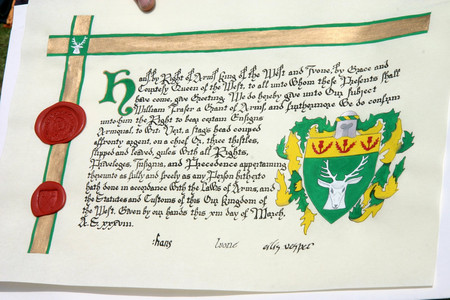 Hans, by Right of Arms King of the West and Yvone, by Grace and
Courtesy Queen of the West, to all unto Whom these Presents shall
have come, give Greeting. We do hereby give unto Our Subject
William Fraser a Grant of Arms, and furthermore We do confirm
unto him the Right to bear certain Ensigns
Armorial, to Wit: Vert, a stags head couped
affronty argent, on a chief Or, three thistles,
slipped and leaved, gules With all Rights,
Privileges, Insignia, and Precedence appertaining
thereunto as fully and freely as any Person hitherto
hath done in accordance With the Laws of Arms, and
the Statutes and Customs of this Our Kingdom of
the West. Given by our hands this day of March,
A.S. xxxviii.
Hans